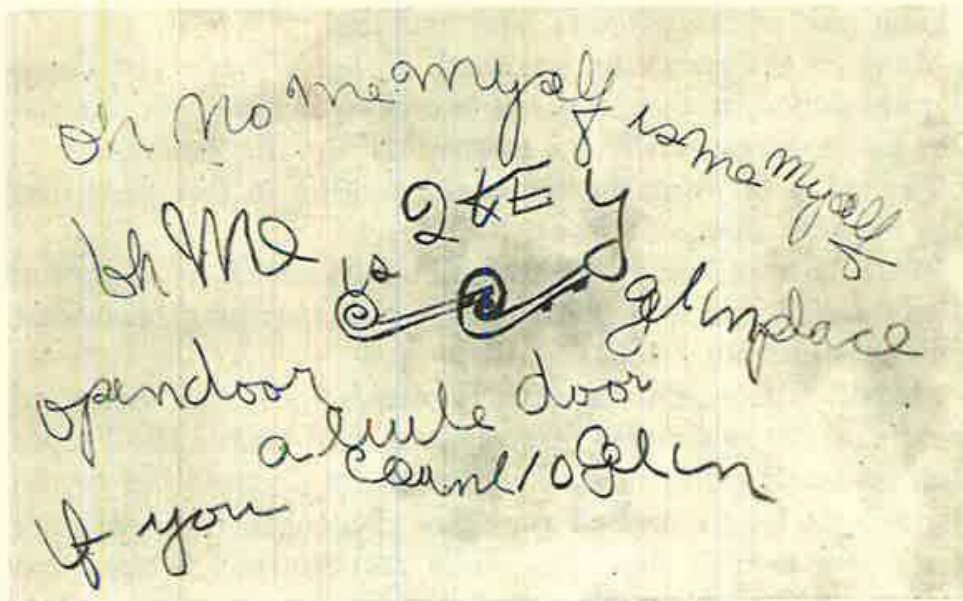 oh no me myself is me myself
oh Me is 2 KEY
get in place
open door
a little door
if you count 10 get in